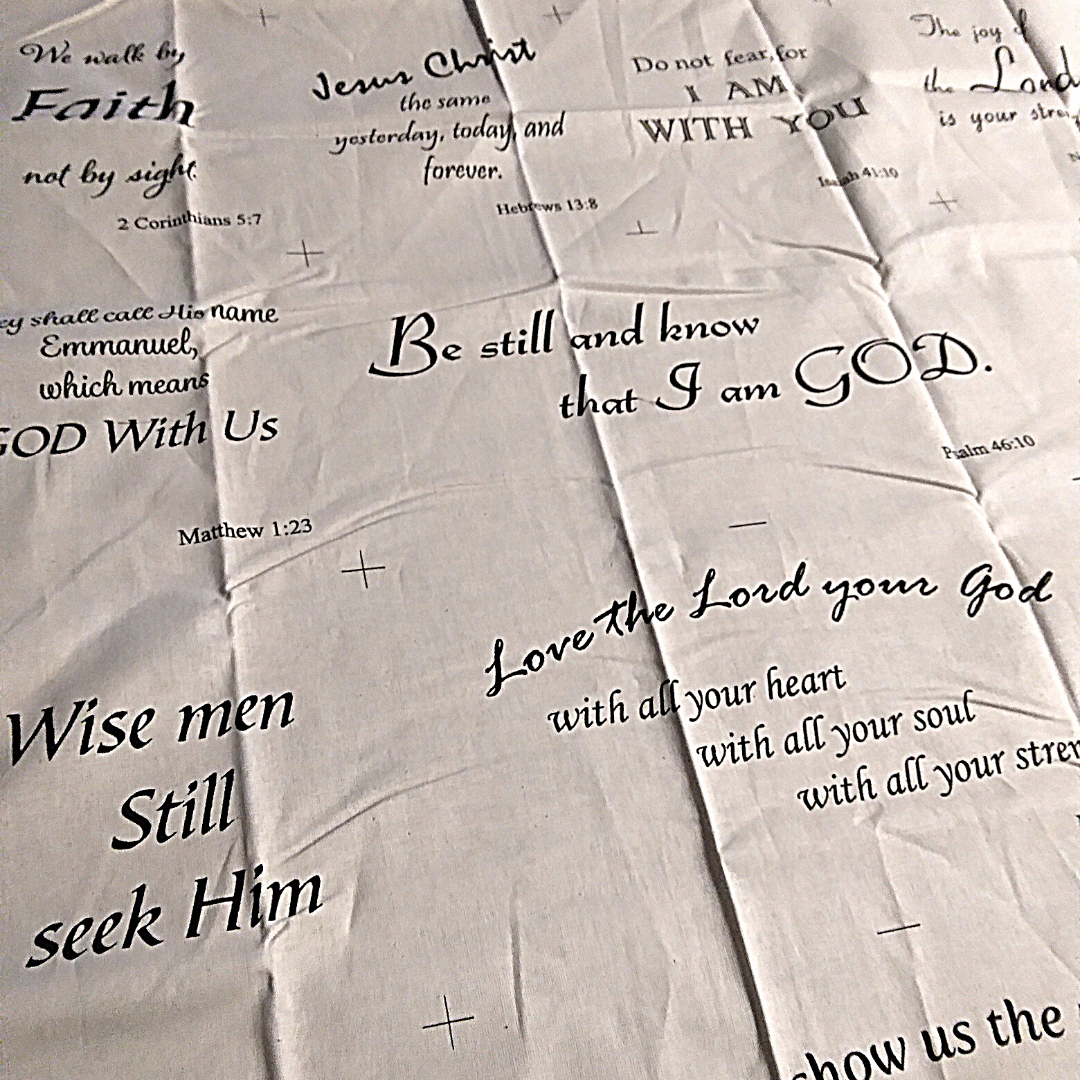 We walk by
Faith
not by sight.
2 Corinthians 5:7
Jesus Christ
the same
yesterday, today, and
forever.
Hebrews 13:8
Do not fear, for
I AM
WITH YOU
Isaiah 41:10
The joy of
the Lord
is your
shall call His name
Emmanuel,
which means
GOD With Us
Matthew 1:23
Be still and know
that I am GOD.
Psalm 46:10
Wise men
Still
seek Him
Love the Lord your God
with all your heart
with all your soul
with all your
show us the